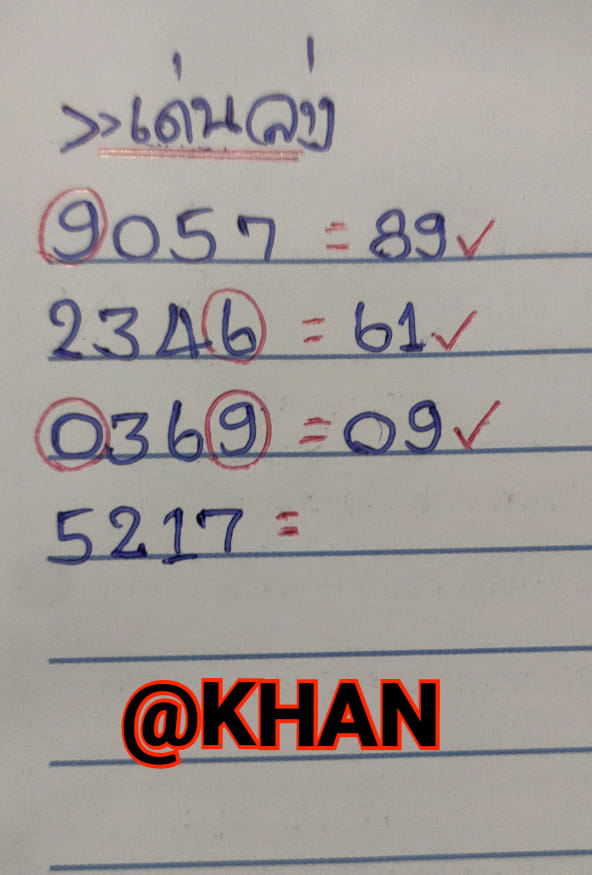 >>เด่นล่าง
9057 = 89✓
2346 = 61✓
0369 = 09✓
5217 =
@KHAN